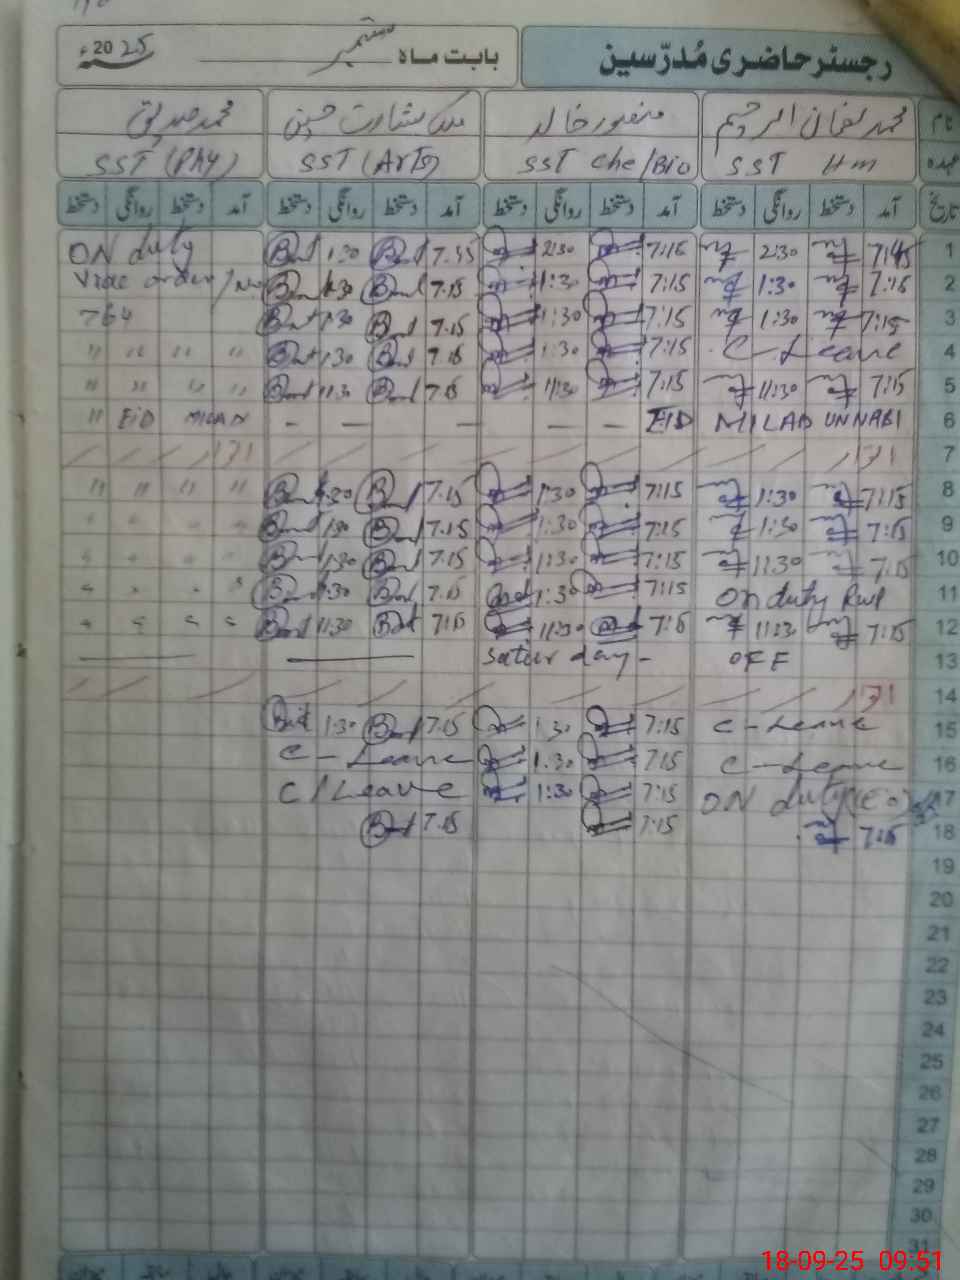 رجسٹر حاضری مُدرّسین
بابت ماہ ستمبر 2025ء
نام محمد لقمان الرحیم منصور خالد ملک بشارت حسین محمد صدیق
عہدہ SST HM SST Che/Bio SST (Arts) SST (Phy)
تاریخ آمد دستخط روانگی دستخط آمد دستخط روانگی دستخط آمد دستخط روانگی دستخط آمد دستخط روانگی دستخط
1 7:45 2:30 7:15 2:30 1:30 ON duty
2 7:15 1:30 7:15 1:30 7.15 1:30 Vide order/No
3 7:15 1:30 7:15 1:30 7.15 1:30 764
4 C-Leave 7:15 1:30 7.15 1:30 " " " "
5 7:15 11:30 7:15 11:30 7.15 11:30 " " " "
6 EID MILAD UN NABI - - - - - " EID MILAD
7 اتوار اتوار
8 7:15 1:30 7:15 1:30 7.15 1:30 " " " "
9 7:15 1:30 7:15 1:30 7.15 1:30 " " " "
10 7:15 11:30 7:15 11:30 7.15 11:30 " " " "
11 On duty Rwp 7:15 1:30 7.15 1:30 " " " "
12 7:15 11:30 7:15 11:30 7.15 11:30 " " " "
13 Saturday - OFF
14 اتوار
15 C-Leave 7:15 1:30 7.15 1:30
16 C-Leave 7:15 1:30 C-Leave
17 ON duty 7:15 1:30 C/Leave
18 7:15 7:15 7.15
19
20
21
22
23
24
25
26
27
28
29
30
31
18-09-25 09:51